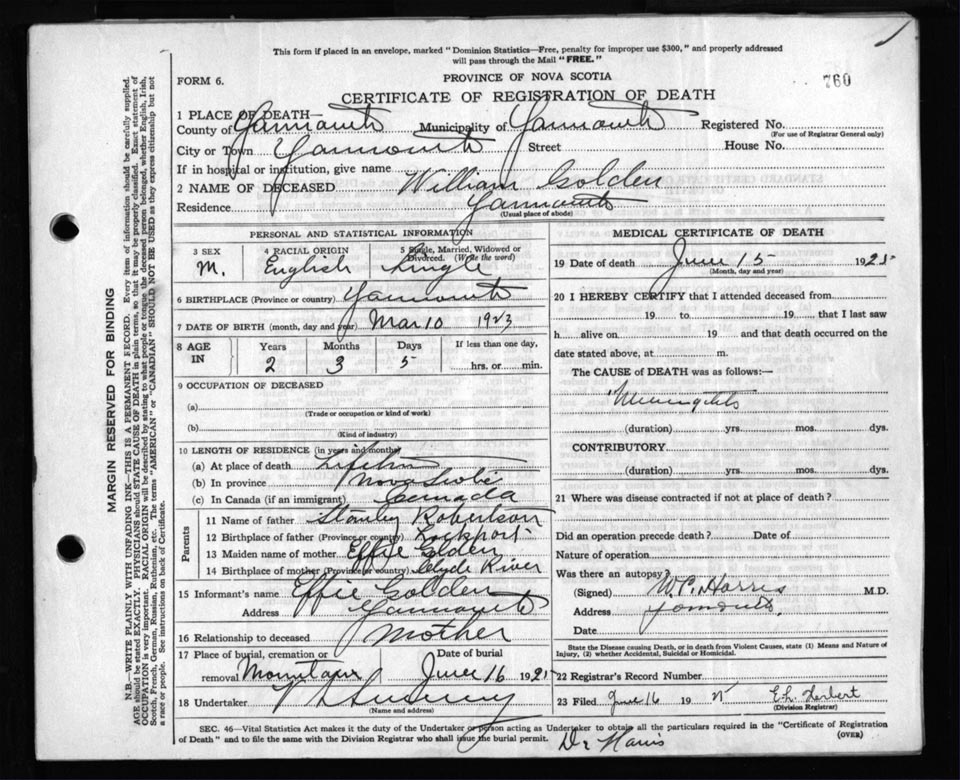 This form if placed in an envelope, marked "Dominion Statistics—Free, penalty for improper use $300," and properly addressed
will pass through the Mail "FREE."
FORM 6.
PROVINCE OF NOVA SCOTIA
760
CERTIFICATE OF REGISTRATION OF DEATH
1 PLACE OF DEATH—
County of Yarmouth Municipality of Yarmouth Registered No.
(For use of Registrar General only)
City or Town Yarmouth Street House No.
If in hospital or institution, give name
2 NAME OF DECEASED William Golden
Residence Yarmouth
(Usual place of abode)
PERSONAL AND STATISTICAL INFORMATION
3 SEX 4 RACIAL ORIGIN 5 Single, Married, Widowed or
Divorced. (Write the word)
M. English Single
6 BIRTHPLACE (Province or country) Yarmouth
7 DATE OF BIRTH (month, day and year) Mar 10 1923
8 AGE IN Years Months Days If less than one day,
2 3 5 hrs. or min.
9 OCCUPATION OF DECEASED
(a)
(Trade or occupation or kind of work)
(b)
(Kind of industry)
10 LENGTH OF RESIDENCE (in years and months)
(a) At place of death Lifetime
(b) In province Nova Scotia
(c) In Canada (if an immigrant) Canada
Parents
11 Name of father Stanley Robertson
12 Birthplace of father (Province or country) Rockport
13 Maiden name of mother Effie Golden
14 Birthplace of mother (Province or country) Clyde River
15 Informant's name Effie Golden
Address Yarmouth
16 Relationship to deceased Mother
17 Place of burial, cremation or Date of burial
removal Mountain June 16 1925
18 Undertaker
(Name and address)
MEDICAL CERTIFICATE OF DEATH
19 Date of death June 15 1925
(Month, day and year)
20 I HEREBY CERTIFY that I attended deceased from
19 to 19 , that I last saw
h alive on 19 and that death occurred on the
date stated above, at m.
The CAUSE of DEATH was as follows:—
"Meningitis"
(duration) yrs. mos. dys.
CONTRIBUTORY
(duration) yrs. mos. dys.
21 Where was disease contracted if not at place of death?
Did an operation precede death? Date of
Nature of operation
Was there an autopsy?
(Signed) W. C. Harris M.D.
Address Yarmouth
Date
State the Disease causing Death, or in death from Violent Causes, state (1) Means and Nature of
Injury, (2) whether Accidental, Suicidal or Homicidal.
22 Registrar's Record Number
23 Filed June 16 19 25 E. L. Herbert
(Division Registrar)
SEC. 46—Vital Statistics Act makes it the duty of the Undertaker or person acting as Undertaker to obtain all the particulars required in the "Certificate of Registration
of Death" and to file the same with the Division Registrar who shall issue the burial permit.
(OVER)
Dr Harris
MARGIN RESERVED FOR BINDING
N.B.—WRITE PLAINLY WITH UNFADING INK—THIS IS A PERMANENT RECORD. Every item of information should be carefully supplied.
AGE should be stated EXACTLY. PHYSICIANS should STATE CAUSE OF DEATH in plain terms, so that it may be properly classified. Exact statement of
OCCUPATION is very important. RACIAL ORIGIN will be described by stating to what people or tongue the deceased person belonged, whether English, Irish,
Scotch, French, German, Russian, Ruthenian, etc. The terms "AMERICAN" or "CANADIAN" SHOULD NOT BE USED as they express citizenship but not
a race or people. See instructions on back of Certificate.